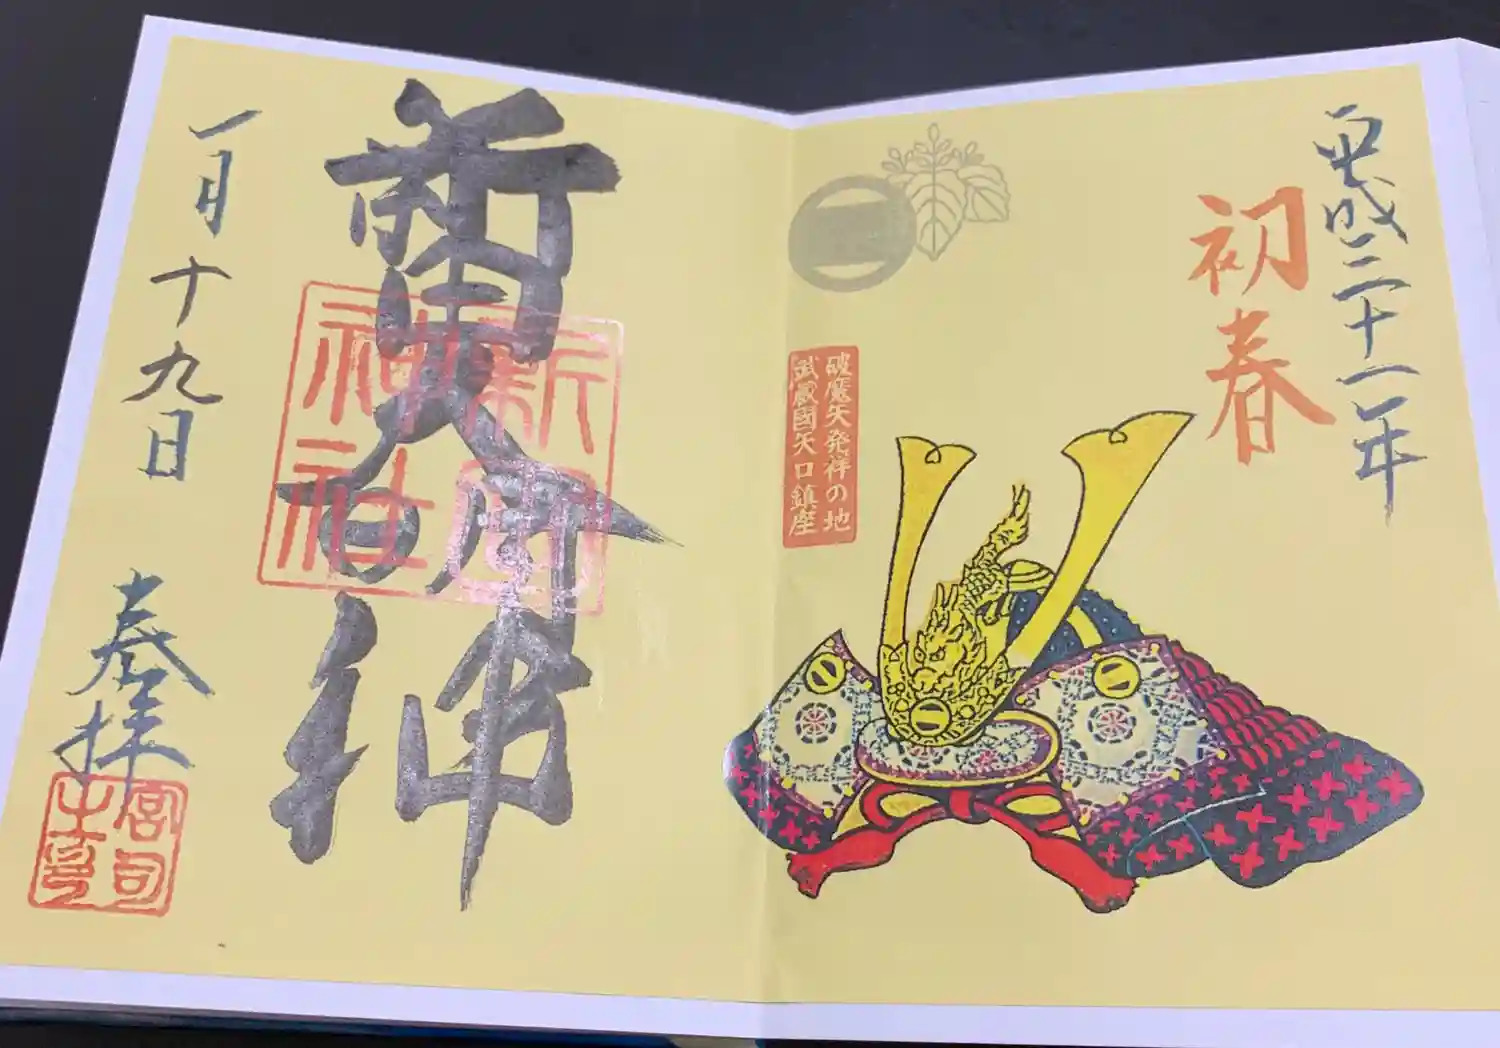 平成三十一年
初春
破魔矢発祥の地
武蔵國矢口鎮座
新田大明神
新田
神社
一月十九日
奉拝
宮司
之印